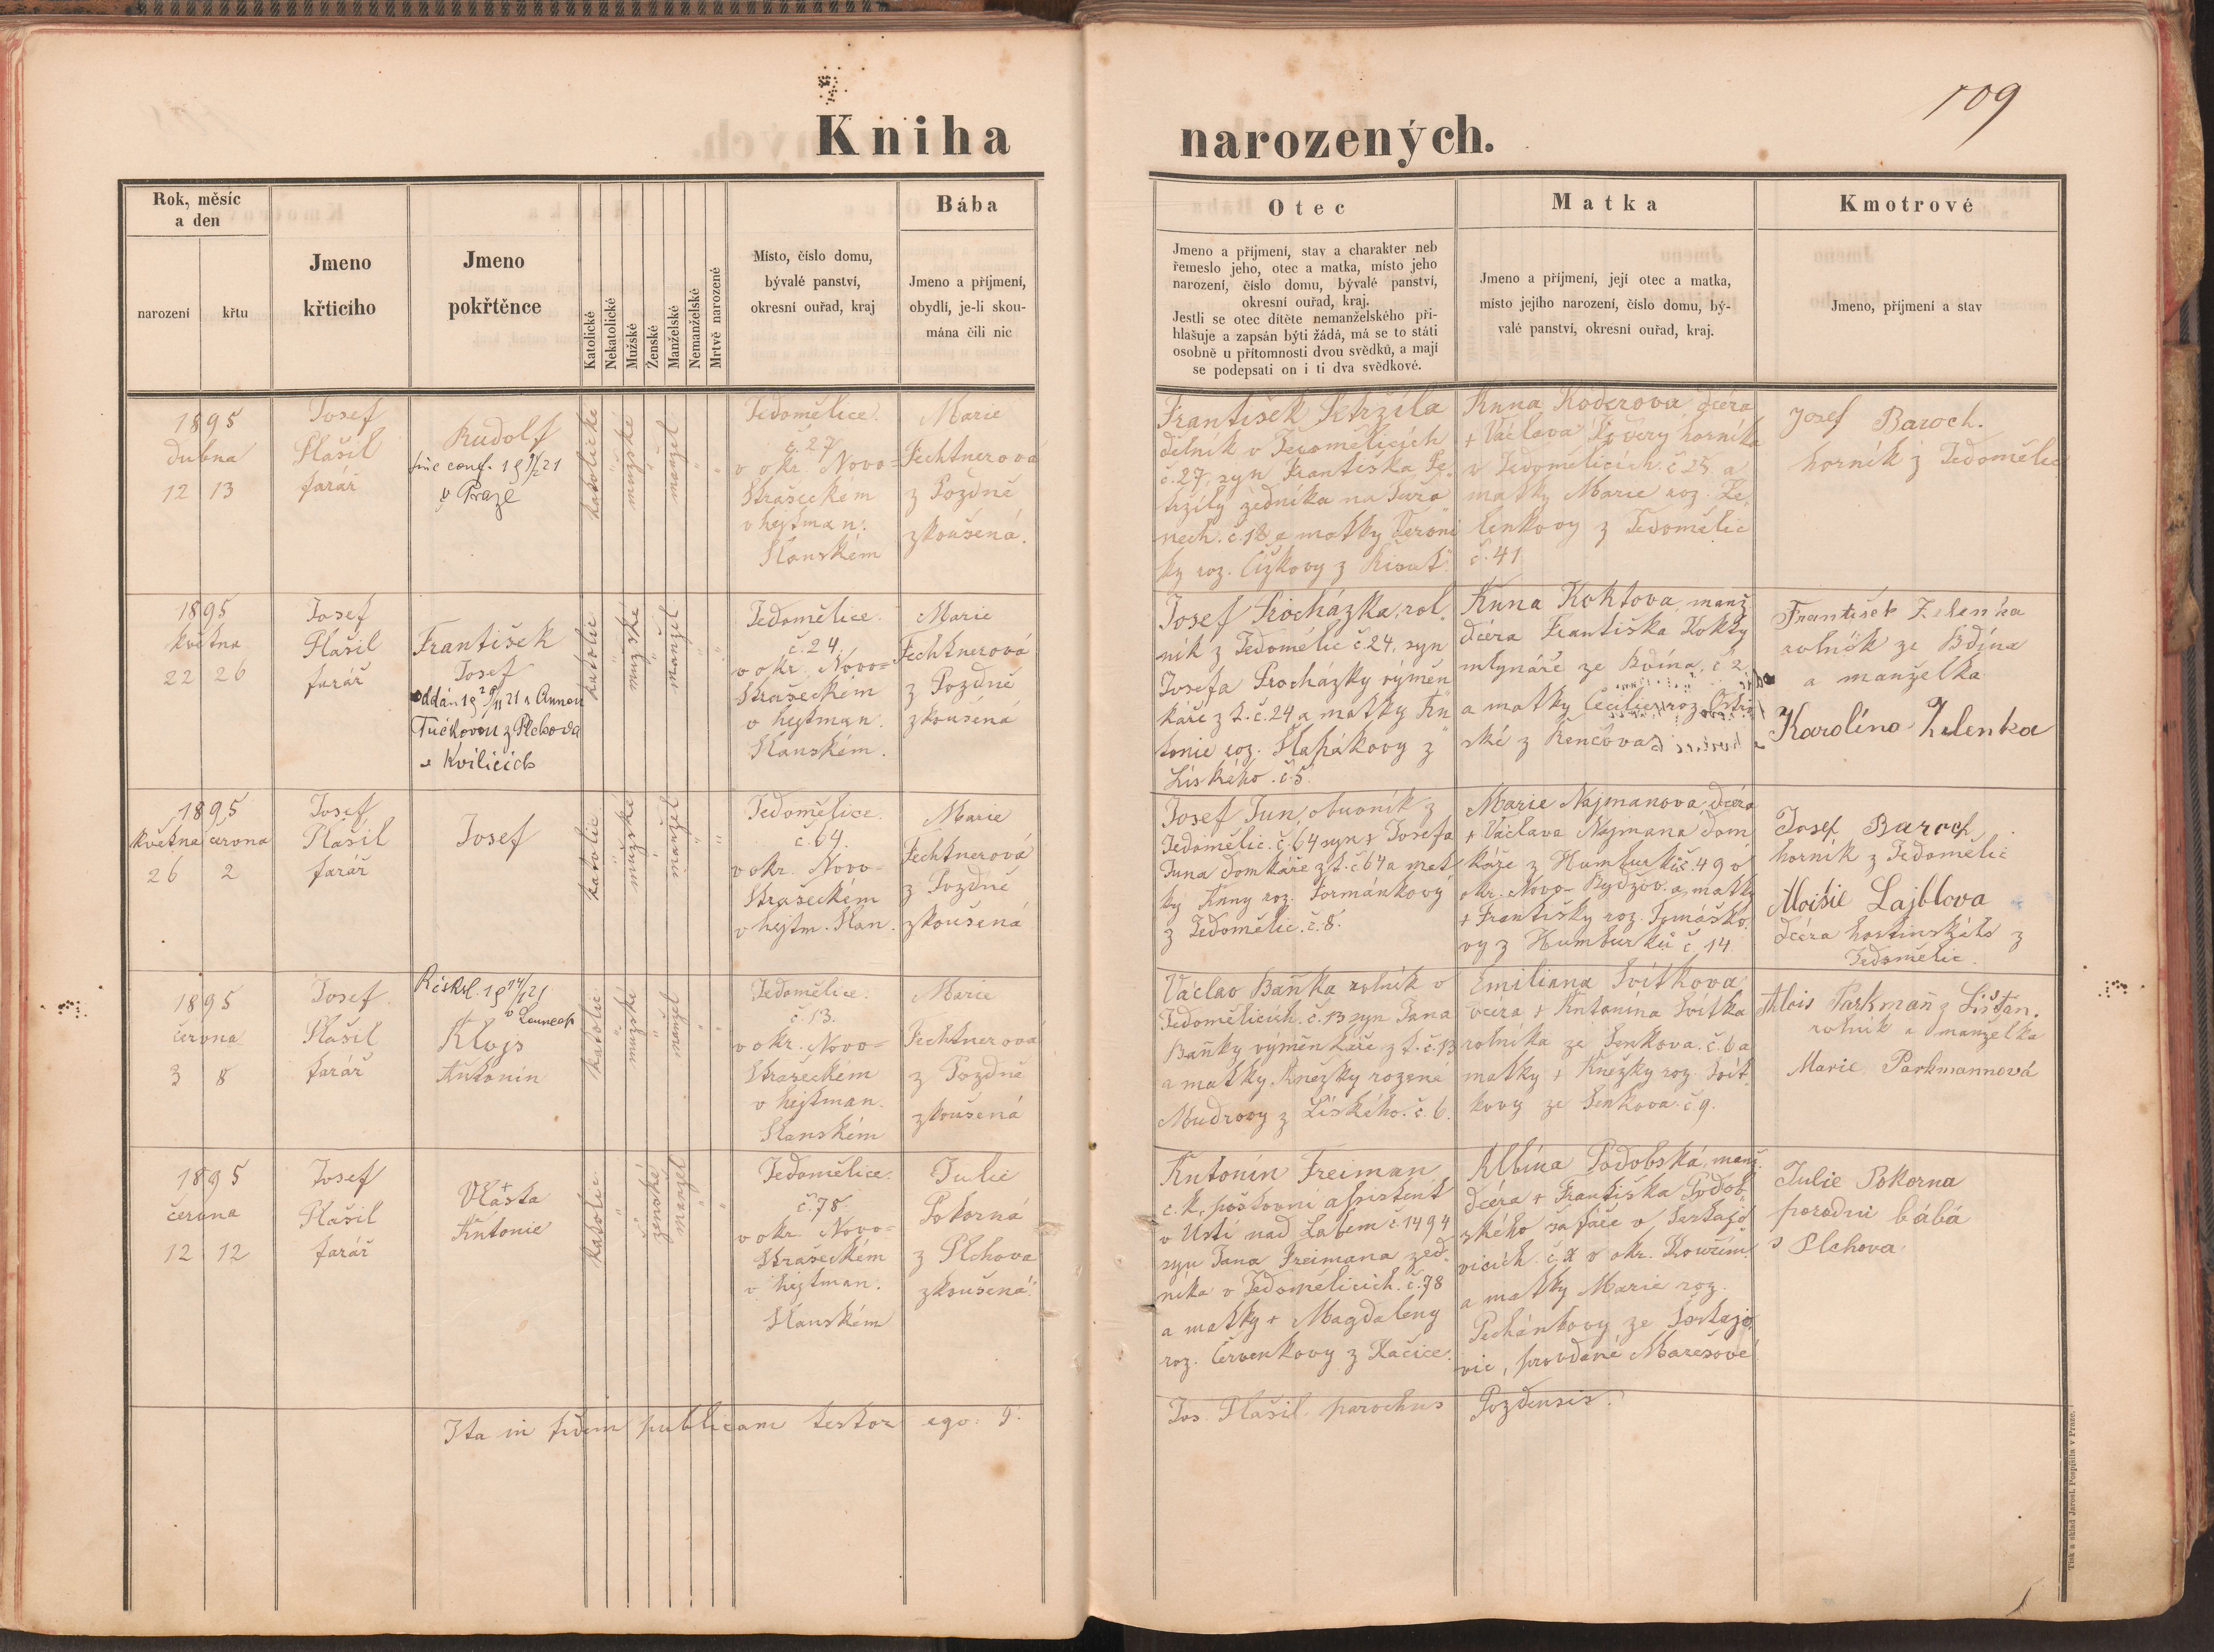 109
Kniha narozených.
Rok, měsíc
a den
narození
křtu
Jmeno
křticího
Jmeno
pokřtěnce
Katolické
Nekatolické
Mužské
Ženské
Manželské
Nemanželské
Mrtvě narozené
Místo, číslo domu,
bývalé panství,
okresní ouřad, kraj
Bába
Jmeno a příjmení,
obydlí, je-li skou-
mána čili nic
Otec
Jmeno a příjmení, stav a charakter neb
řemeslo jeho, otec a matka, místo jeho
narození, číslo domu, bývalé panství,
okresní ouřad, kraj.
Jestli se otec dítěte nemanželského při-
hlašuje a zapsán býti žádá, má se to státi
osobně u přítomnosti dvou svědků, a mají
se podepsati on i ti dva svědkové.
Matka
Jmeno a příjmení, její otec a matka,
místo jejího narození, číslo domu, bý-
valé panství, okresní ouřad, kraj.
Kmotrové
Jmeno, příjmení a stav
1895
dubna
12 13
Josef
Plašil
farář
Rudolf
v Praze
katolické
mužské
manžel
Jedomělice.
č. 27
v okr. Novo-
Strašeckém
v hejtman.
Slanském
Marie
Fechtnerová
z Pozdně
zkoušená.
František Petržíla
dělník v Jedomělicích
č. 27, syn Františka Pe-
tržíly zedníka na Tuřa
nech. č. 12 a matky Veroni
ky roz. Čížkovy z
Anna Koderova dcera
+ Václava Kodery horníka
v Jedomělicích č 25 a
matky Marie roz. Ze
lenkovy z Jedomělic
č. 41
Josef Baroch.
horník z Jedomělic
1895
května
22 26
Josef
Plašil
farář
František
Josef
oddán 19 29/11 21 s Annou
Tučkovou z Plchova
v Kvílicích
katolic
mužské
manžel
Jedomělice.
č. 24.
v okr. Novo-
Strašeckém
v hejtman.
Slanském.
Marie
Fechtnerová
z Pozdně
zkoušená
Josef Procházka, rol-
ník z Jedomělic č. 24, syn
Josefa Procházky výměn
káře z t. č. 24 a matky An
tonie roz. Slapákovy z
Líského. č. 5
Anna Koktova, manž.
dcera Františka Kokty
mlynáře ze Bdína, č 2
a matky Cecilie roz. Ostro
ské z Řenčova
František Zelenka
rolník ze Bdína
a manželka
Karolína Zelenka
1895
května června
26 2
Josef
Plašil
farář
Josef
katolic
mužské
manžel
Jedomělice.
č. 64.
v okr. Novo-
Strašeckém
v hejtm. Slan.
Marie
Fechtnerová
z Pozdně
zkoušená
Josef Tuna, obuvník z
Jedomělic. č. 64 syn + Josefa
Tuna domkáře z t. č 64 a mat
ky Anny roz. Formánkovy
z Jedomělic. č. 8.
Marie Najmanova dcera
+ Václava Najmana dom
káře z Humburků č. 49 v
okr. Novo- Bydžov. a matky
+ Františky roz. Tomáško
vy z Humburků č. 14
Josef Baroch
horník z Jedomělic
Aloisie Lajblova
dcera hostinského z
Jedomělic.
1895
června
3 8
Josef
Plašil
farář
v Lounech
Alojs
Antonín
katolic
mužské
manžel
Jedomělice.
č. 13.
v okr. Novo-
Strašeckém
v hejtman.
Slanském
Marie
Fechtnerová
z Pozdně
zkoušená
Václav Baňka rolník v
Jedomělicích. č. 13 syn Jana
Baňky výměnkáře z t. č. 13
a matky Anežky rozené
Mudrovy z Líského. č. 6.
Emiliana Svítkova
dcera + Antonína Svítka
rolníka ze Senkova. č. 6 a
matky + Anežky roz. Svít
kovy ze Senkova. č 9.
Alois Parkmann z Lišťan.
rolník a manželka
Marie Parkmannová
1895
června
12 12
Josef
Plašil
farář
+
Vlasta
Antonie
katolic
ženské
manžel
Jedomělice.
č. 78.
v okr. Novo-
Strašeckém
v hejtman.
Slanském
Julie
Pokorná
z Plchova
zkoušená.
Antonín Freiman
c. k. poštovní assistent
v Ústí nad Labem č 1494
syn Jana Freimana zed-
níka v Jedomělicích. č. 78
a matky + Magdaleny
roz. Červenkovy z Kačice.
Albína Podobská, manž.
dcera + Františka Podob-
ského šafáře v
vicích. č. v okr. Kouřim.
a matky Marie roz.
Pechánkovy ze
vic, provdané Marešové
Julie Pokorna
porodní bába
z Plchova.
Ita in fidem publicam testor ego: P. Jos. Plašil. parochus Pozdensis.
Tisk a sklad Jarosl. Pospíšila v Praze.